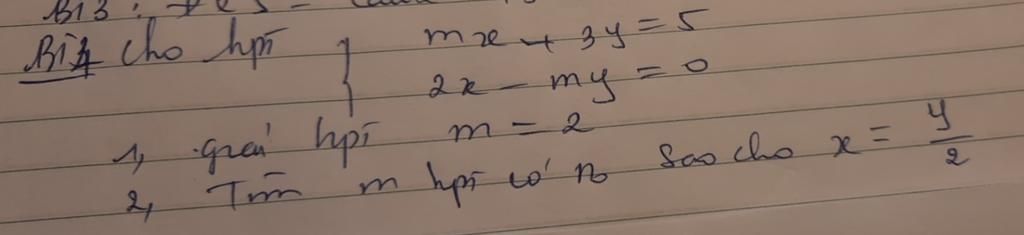 Bi3:
Bi4 cho hpt { mx + 3y = 5
2x - my = 0
1, giải hpt m = 2
2, Tìm m hpt có no sao cho x = y/2